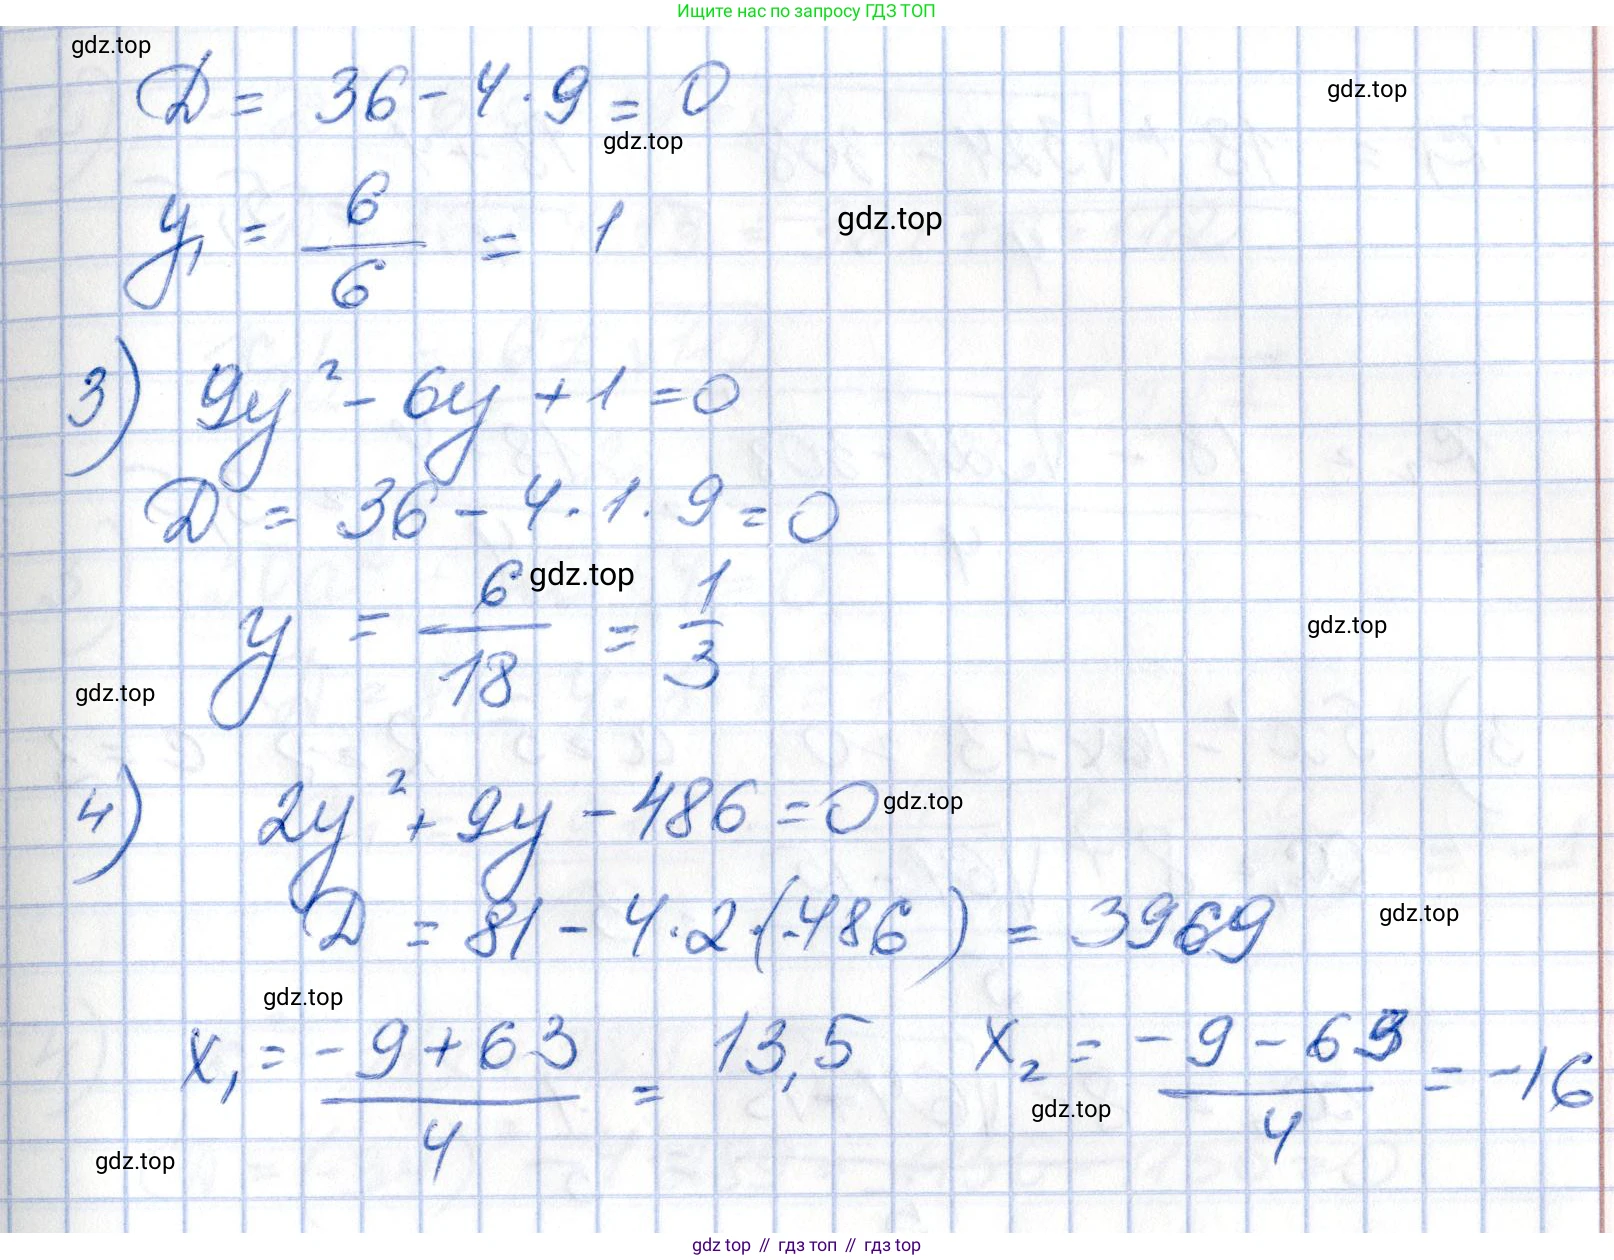 Ищите нас по запросу ГДЗ ТОП
gdz.top
D = 36 - 4 · 9 = 0
gdz.top
gdz.top
y₁ = 6/6 = 1
gdz.top
3) 9y² - 6y + 1 = 0
D = 36 - 4 · 1 · 9 = 0
y = 6/18 = 1/3
gdz.top
gdz.top
gdz.top
4) 2y² + 9y - 486 = 0
gdz.top
D = 81 - 4 · 2 · (-486) = 3969
gdz.top
gdz.top
x₁ = (-9 + 63)/4 = 13,5 x₂ = (-9 - 63)/4 = -16
gdz.top
gdz.top
gdz top // гдз топ // гдз top